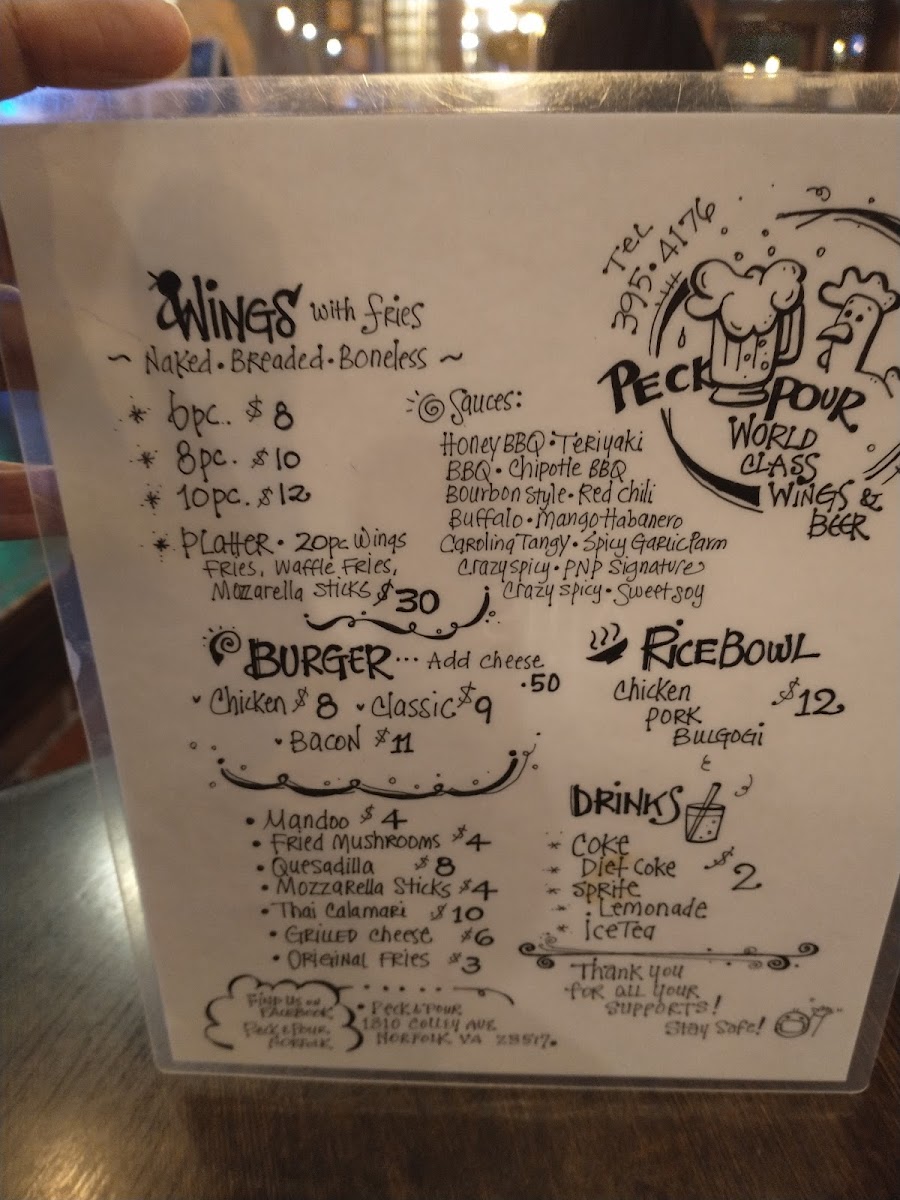 Tel
395.4176
PECK
POUR
WORLD
CLASS
WINGS &
BEER
WINGS with fries
~ Naked • Breaded • Boneless ~
* 6pc.. $8
* 8pc. $10
* 10pc. $12
* Platter • 20pc Wings
Fries, Waffle Fries,
Mozzarella Sticks $30
Sauces:
Honey BBQ • Teriyaki
BBQ • Chipotle BBQ
Bourbon Style • Red Chili
Buffalo • Mango Habanero
Carolina Tangy • Spicy Garlic Parm
Crazy spicy • PNP Signature
Crazy spicy • Sweet soy
BURGER... Add cheese
.50
Chicken $8 Classic $9
Bacon $11
RICE BOWL
Chicken $12
Pork
Bulgogi
• Mandoo $4
• Fried Mushrooms $4
• Quesadilla $8
• Mozzarella Sticks $4
• Thai Calamari $10
• Grilled Cheese $6
• Original Fries $3
DRINKS
* Coke
* Diet Coke $2
* Sprite
* Lemonade
* Ice Tea
Thank you
for all your
supports!
Stay Safe!
Find us on
Facebook
Peck & Pour,
Norfolk
• Peck & Pour
1810 Colley Ave
Norfolk VA 23517.